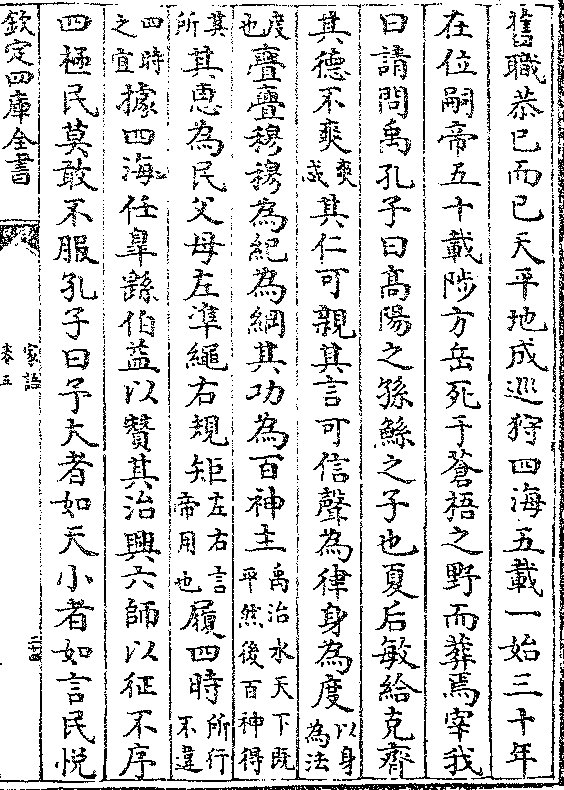 舊職恭已而已天平地成巡狩四海五載一始三十年
在位嗣帝五十載陟方岳死于蒼梧之野而葬焉宰我
曰請問禹孔子曰髙陽之孫鯀之子也夏后敏給克齊
其德不爽爽忒其仁可親其言可信聲為律身為度以身為法
度也亹亹穆穆為紀為綱其功為百神主禹治水天下既平然後百神得
其所其恵為民父母左準繩右規矩左右言帝用也履四時所行不違
四時之宜據四海任臯繇伯益以贊其治興六師以征不序
四極民莫敢不服孔子曰予大者如天小者如言民悅
欽定四庫全書
家語
卷五